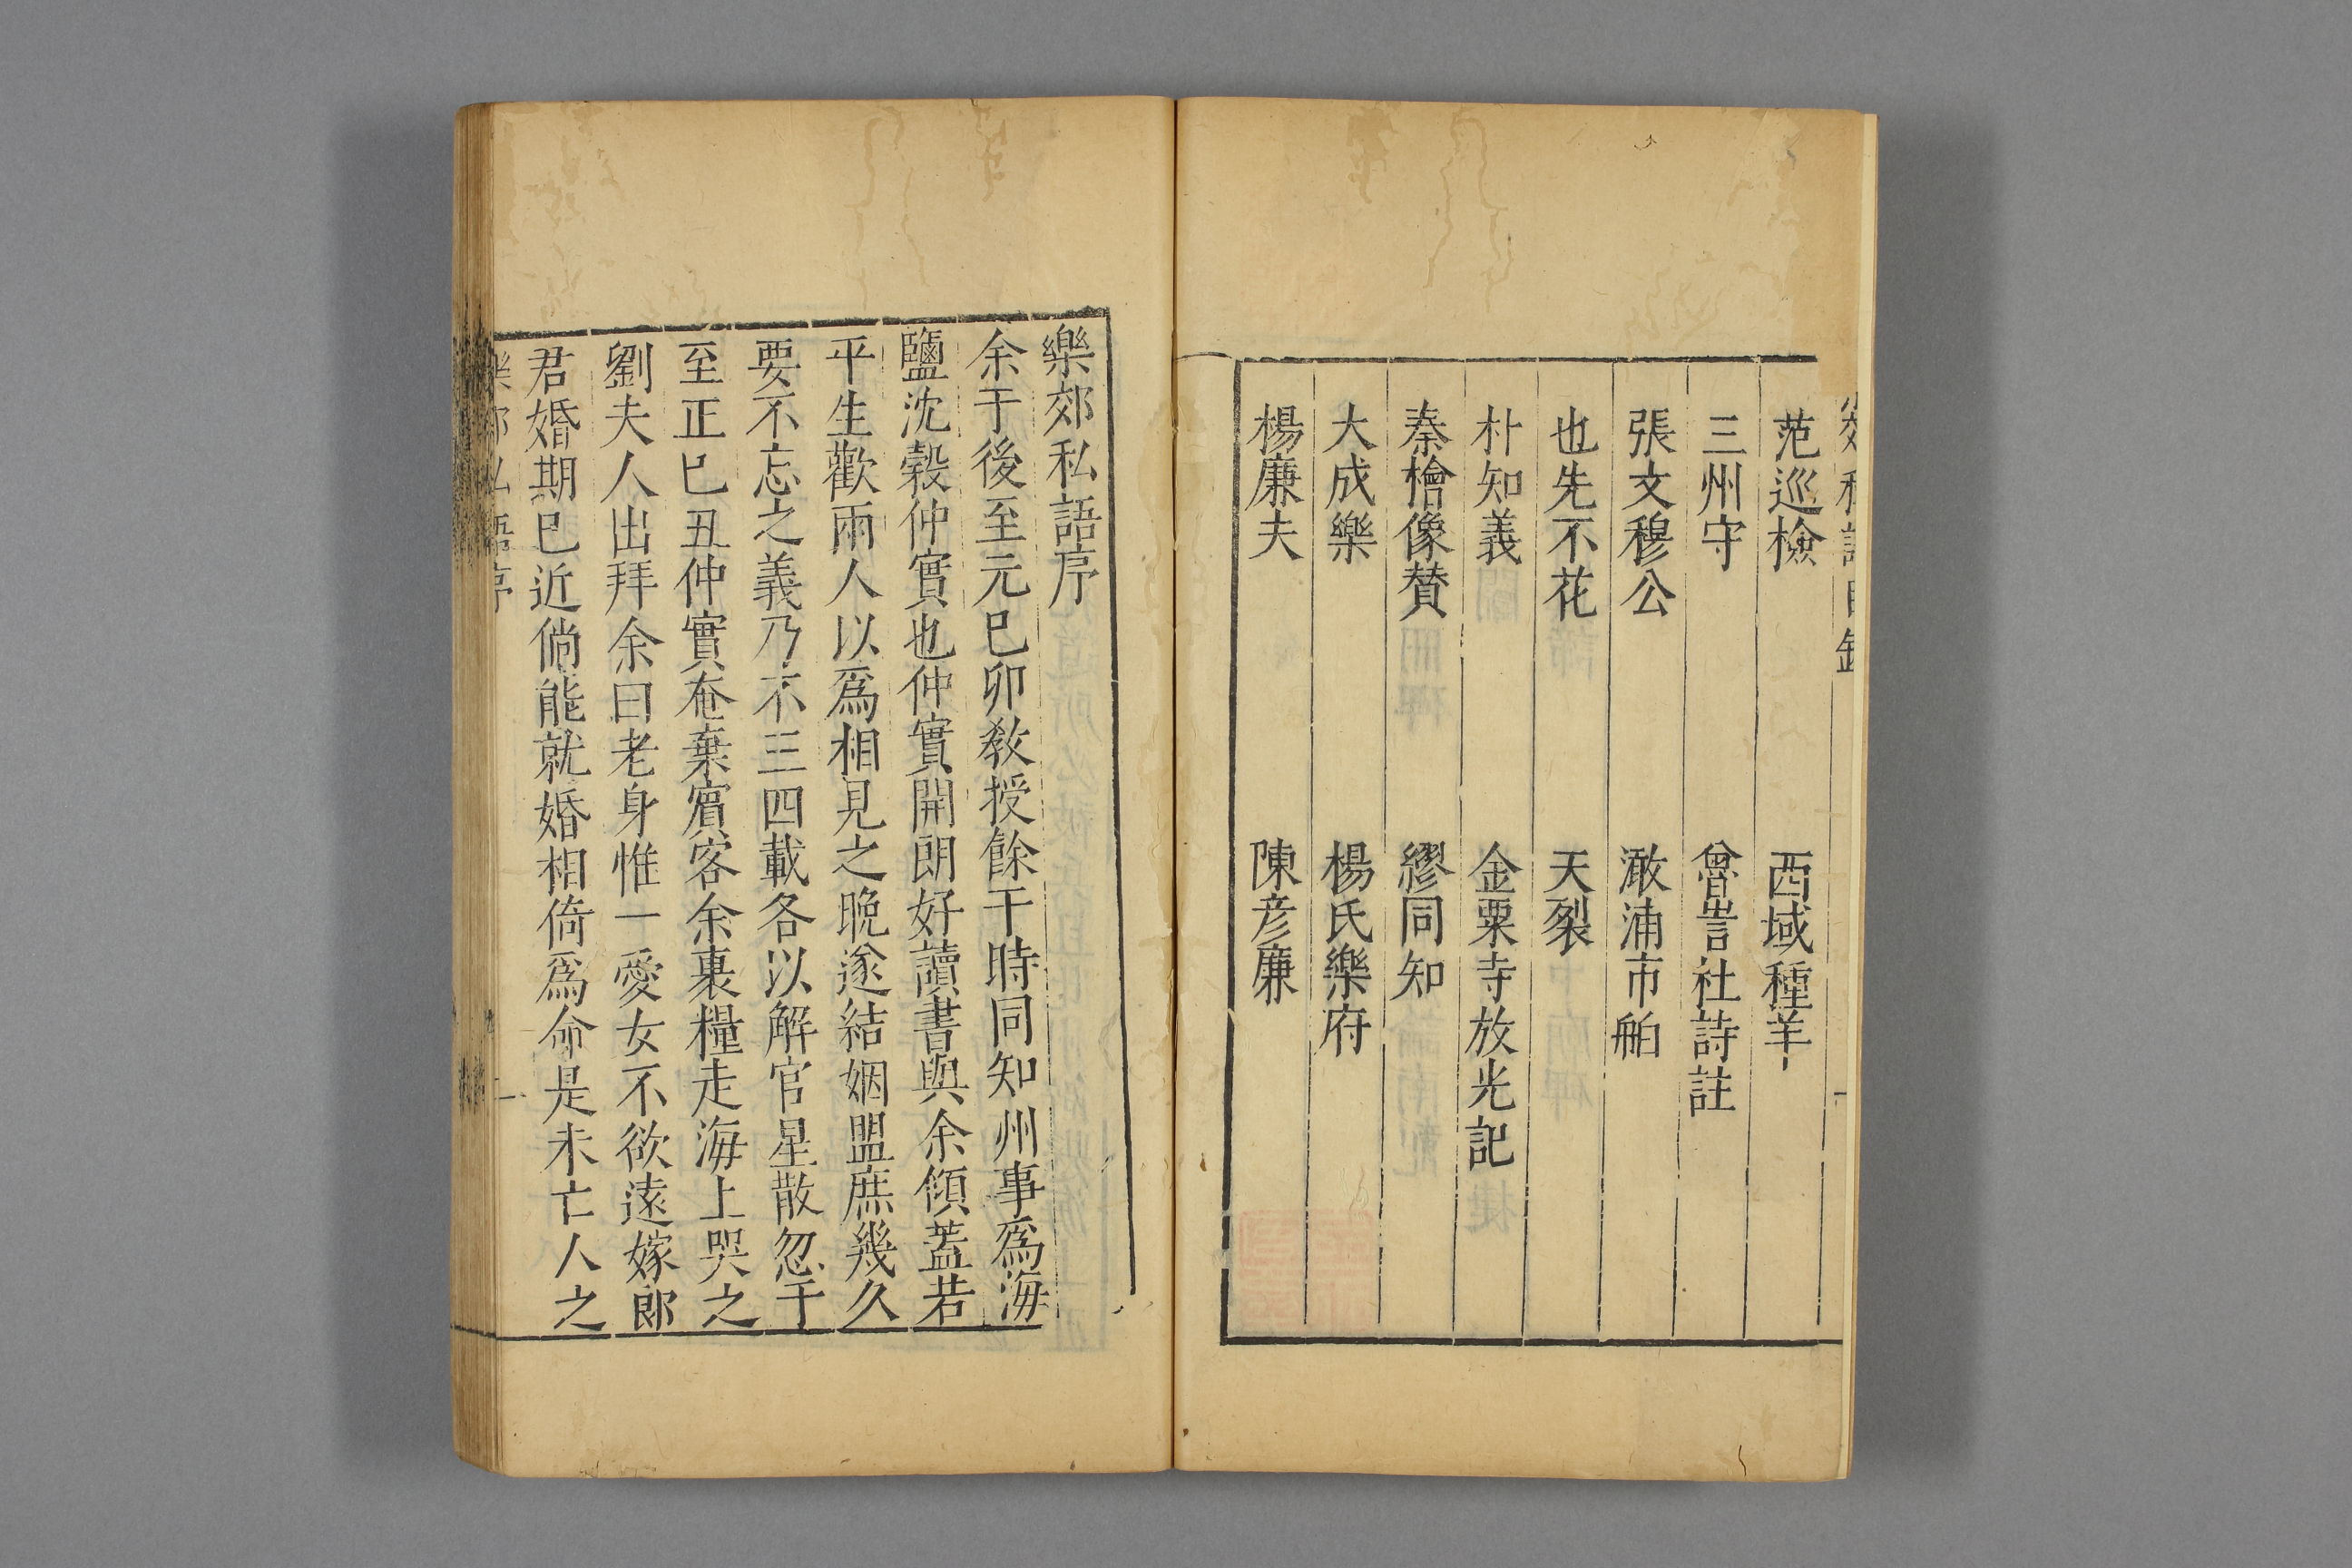 郊私語目錄
范巡檢　西域種羊
三州守　曾訔社詩註
張文穆公　澉浦市舶
也先不花　天裂
朴知義　金粟寺放光記
秦檜像贊　繆同知
大成樂　楊氏樂府
楊廉夫　陳彥廉
樂郊私語序
余于後至元已卯敎授餘干時同知州事爲海
鹽沈穀仲實也仲實開朗好讀書與余傾蓋若
平生歡兩人以爲相見之晚遂結姻盟庶幾久
要不忘之義乃不三四載各以解官星散忽于
至正已丑仲實奄棄賓客余裹糧走海上哭之
劉夫人出拜余曰老身惟一愛女不欲遠嫁郎
君婚期已近倘能就婚相倚爲命是未亡人之
樂郊私語序　一